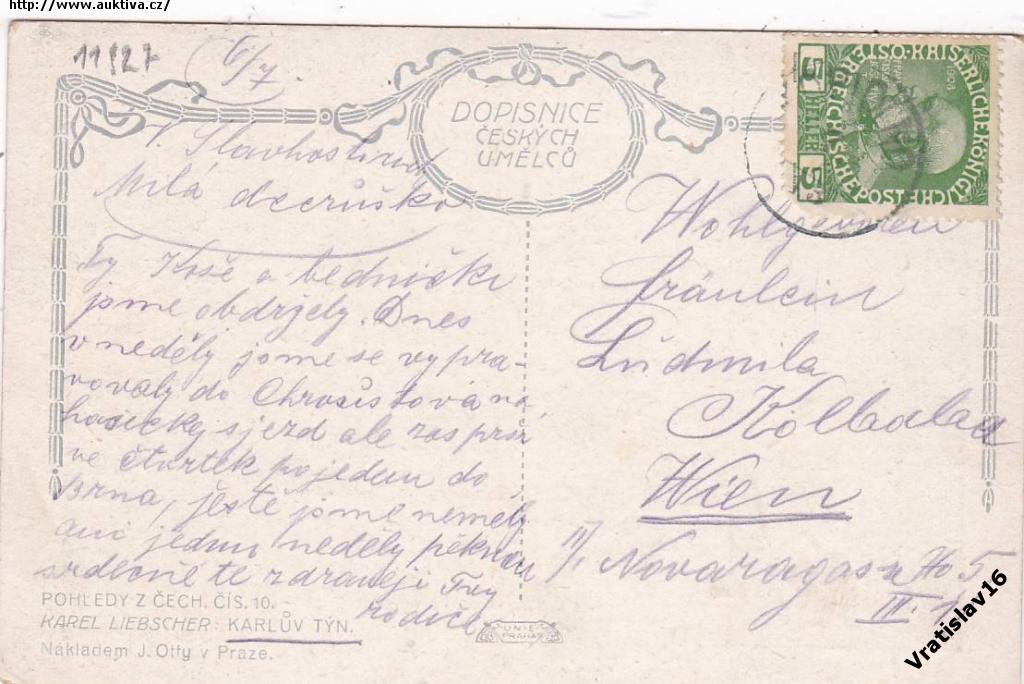 http://www.auktiva.cz/
11927
6/7
DOPISNICE
ČESKÝCH
UMĚLCŮ
5 HELLER 5
1848 1908
KAISERLICHEKÖNIGLICHE
OSTERREICHISCHE POST
V
Milá dceruško
Ty Koše a bedničku
jsme obdržely. Dnes
v neděly jsme se vypra-
vovaly do Chroustova na
hasický sjezd ale zas prší
ve čtvrtek pojedem do
Brna, ještě jsme neměly
ani jednu neděly pěknou
srdečně tě zdraveji Tvy
rodiče
Wohlgeboren
Fräulein
Ludmila
Wien
II/1 Novaragasse No 5
II. 1
POHLEDY Z ČECH. ČÍS. 10.
KAREL LIEBSCHER: KARLŮV TÝN.
Nákladem J. Otty v Praze.
UNIE
PRAHA
Vratislav16